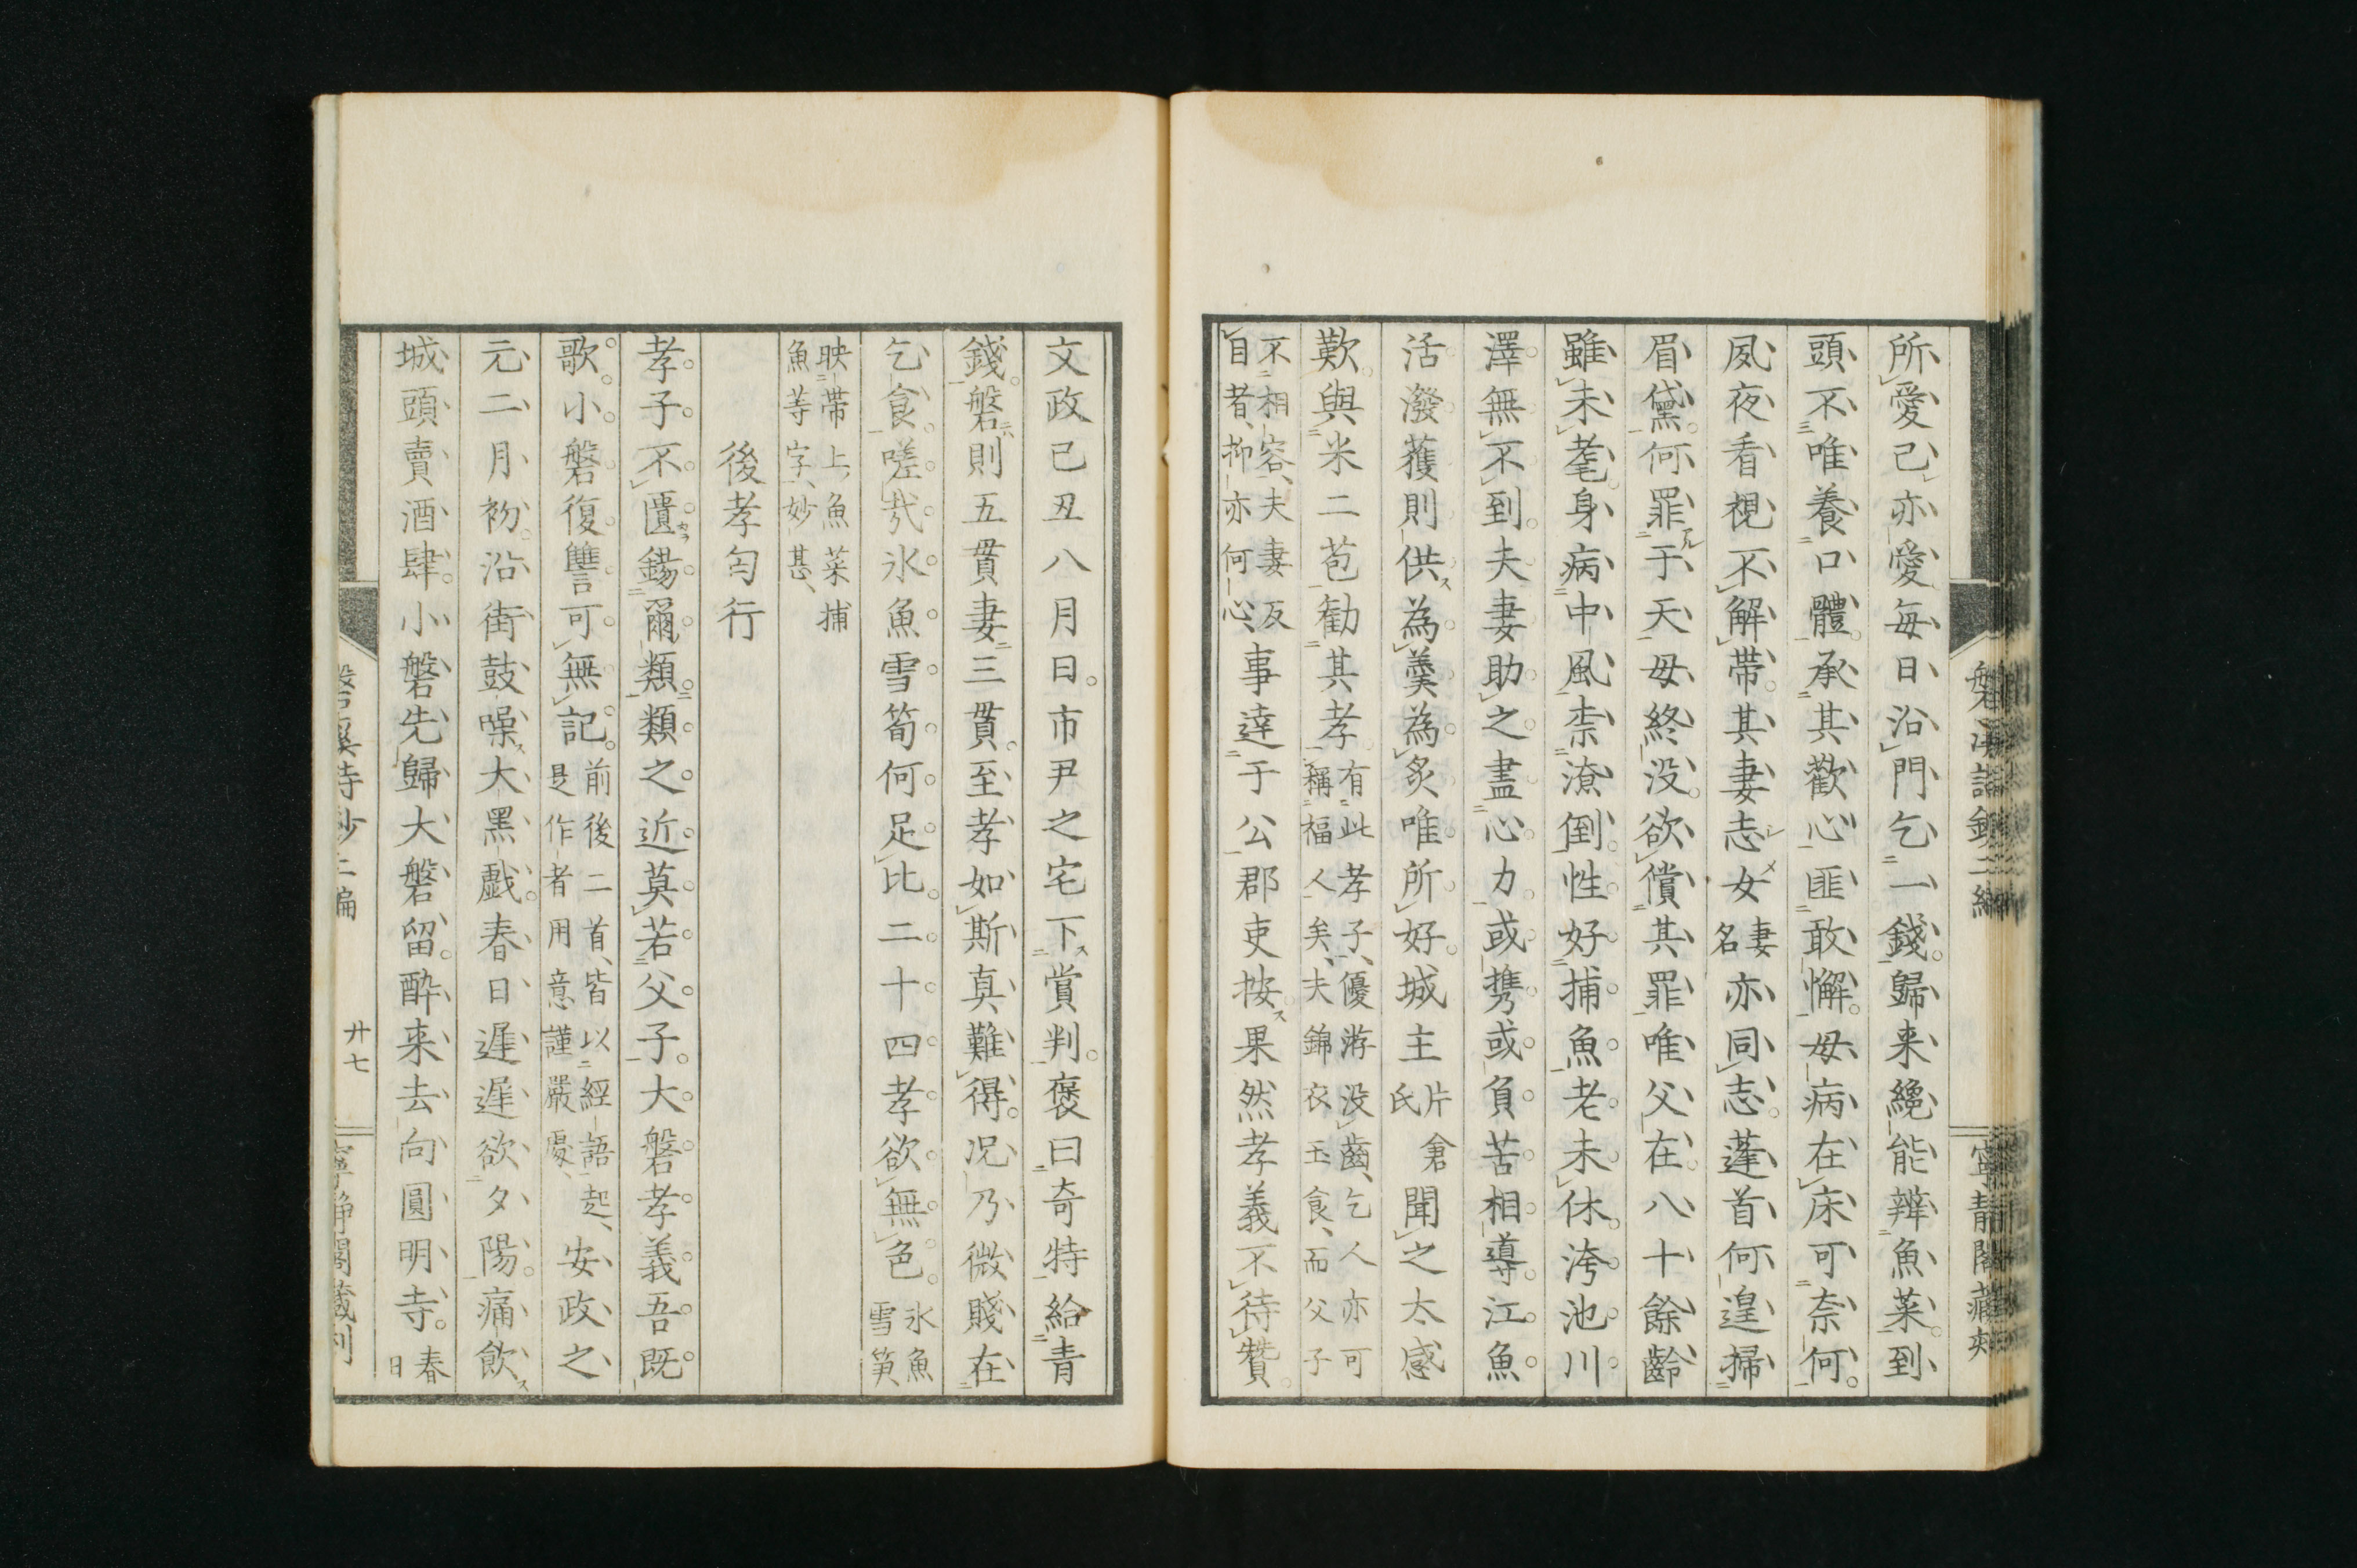 所愛己亦愛毎日沿門乞一錢歸来纔能辨魚菜到
頭不唯養口體承其歡心匪敢懈母病在床可奈何
夙夜看視不解帶其妻志女妻名亦同志蓬首何遑掃
眉黛何罪于天母終没欲償其罪唯父在八十餘齡
雖未耄身病中風柰潦倒性好捕魚老未休洿池川
澤無不到夫妻助之盡心力或携或負苦相導江魚
活潑獲則供為羹為炙唯所好城主片倉氏聞之太感
歎與米二苞勧其孝有此孝子優游没齒乞人亦可
稱福人矣夫錦衣玉食而父子
不相容夫妻反
目者抑亦何心事達于公郡吏按果然孝義不待贊
文政己丑八月日市尹之宅下賞判褒曰奇特給青
錢磐則五貫妻三貫至孝如斯真難得况乃微賤在
乞食嗟哉氷魚雪筍何足比二十四孝欲無色氷魚
雪笋
映帶上魚菜捕
魚等字妙甚
後孝匂行
孝子不匱錫爾類類之近莫若父子大磐孝義吾既
歌小磐復讐可無記前後二首皆以經語起
是作者用意謹嚴處安政之
元二月初沿街鼓噪大黑戯春日遲遲欲夕陽痛飲
城頭賣酒肆小磐先歸大磐留酔来去向圓明寺春
日
磐溪詩鈔二編
廿七
寧静閣蔵刻